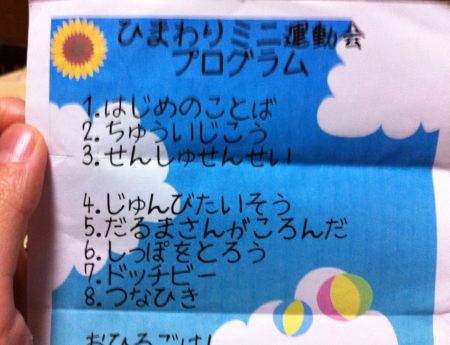 ひまわりミニ運動会
プログラム
1.はじめのことば
2.ちゅういじこう
3.せんしゅせんせい
4.じゅんびたいそう
5.だるまさんがころんだ
6.しっぽをとろう
7.ドッチビー
8.つなひき
おひるごはん